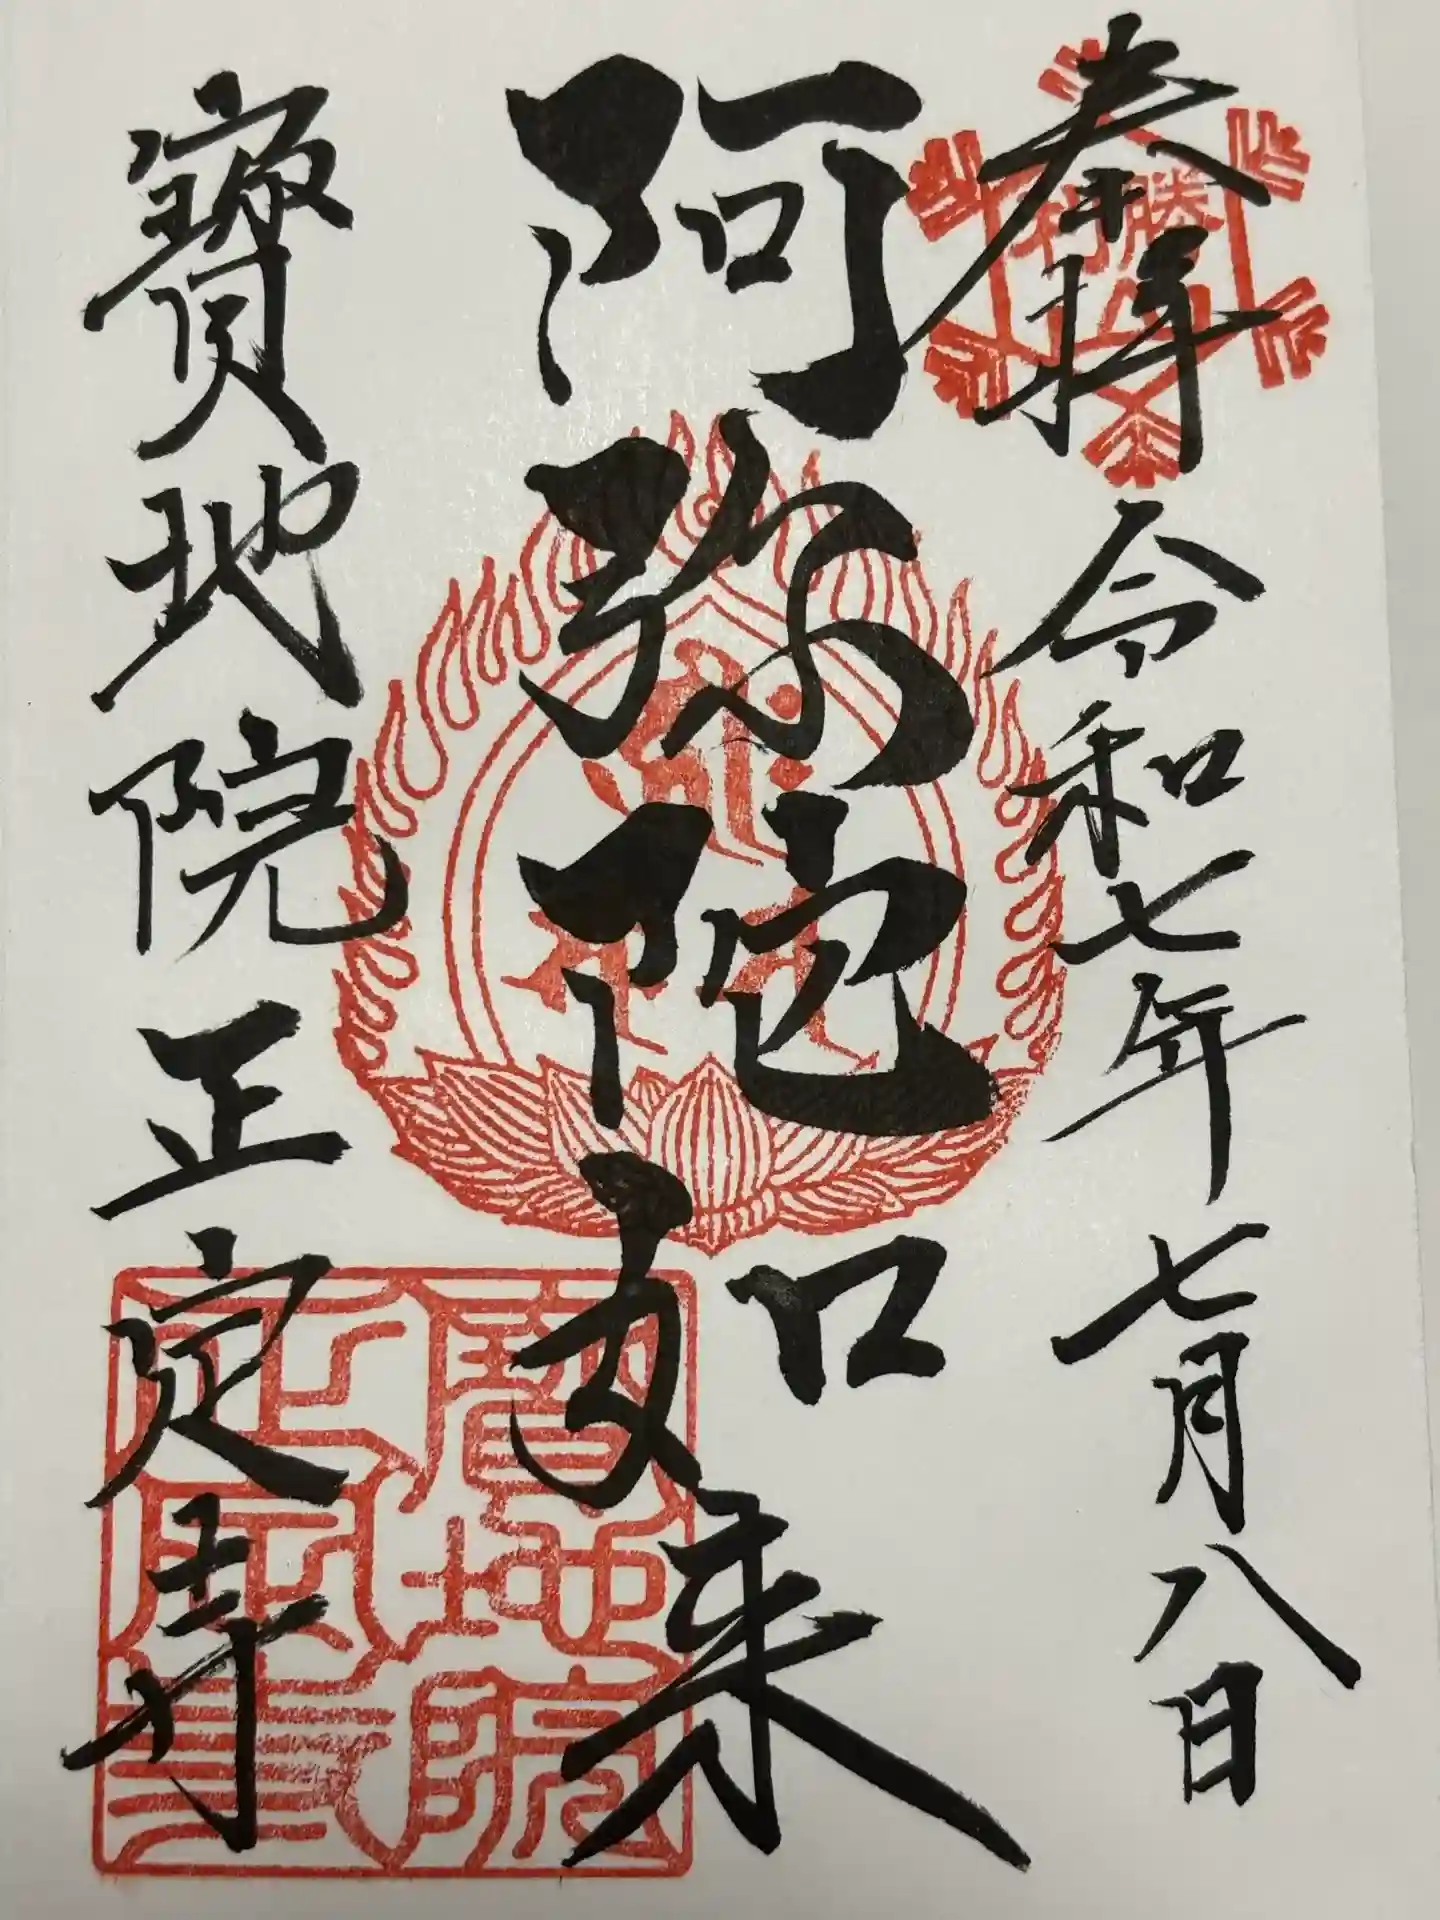 奉拝 令和七年七月八日
勝利山
阿弥陀如来
寶地院 正定寺
寶地院
正定寺